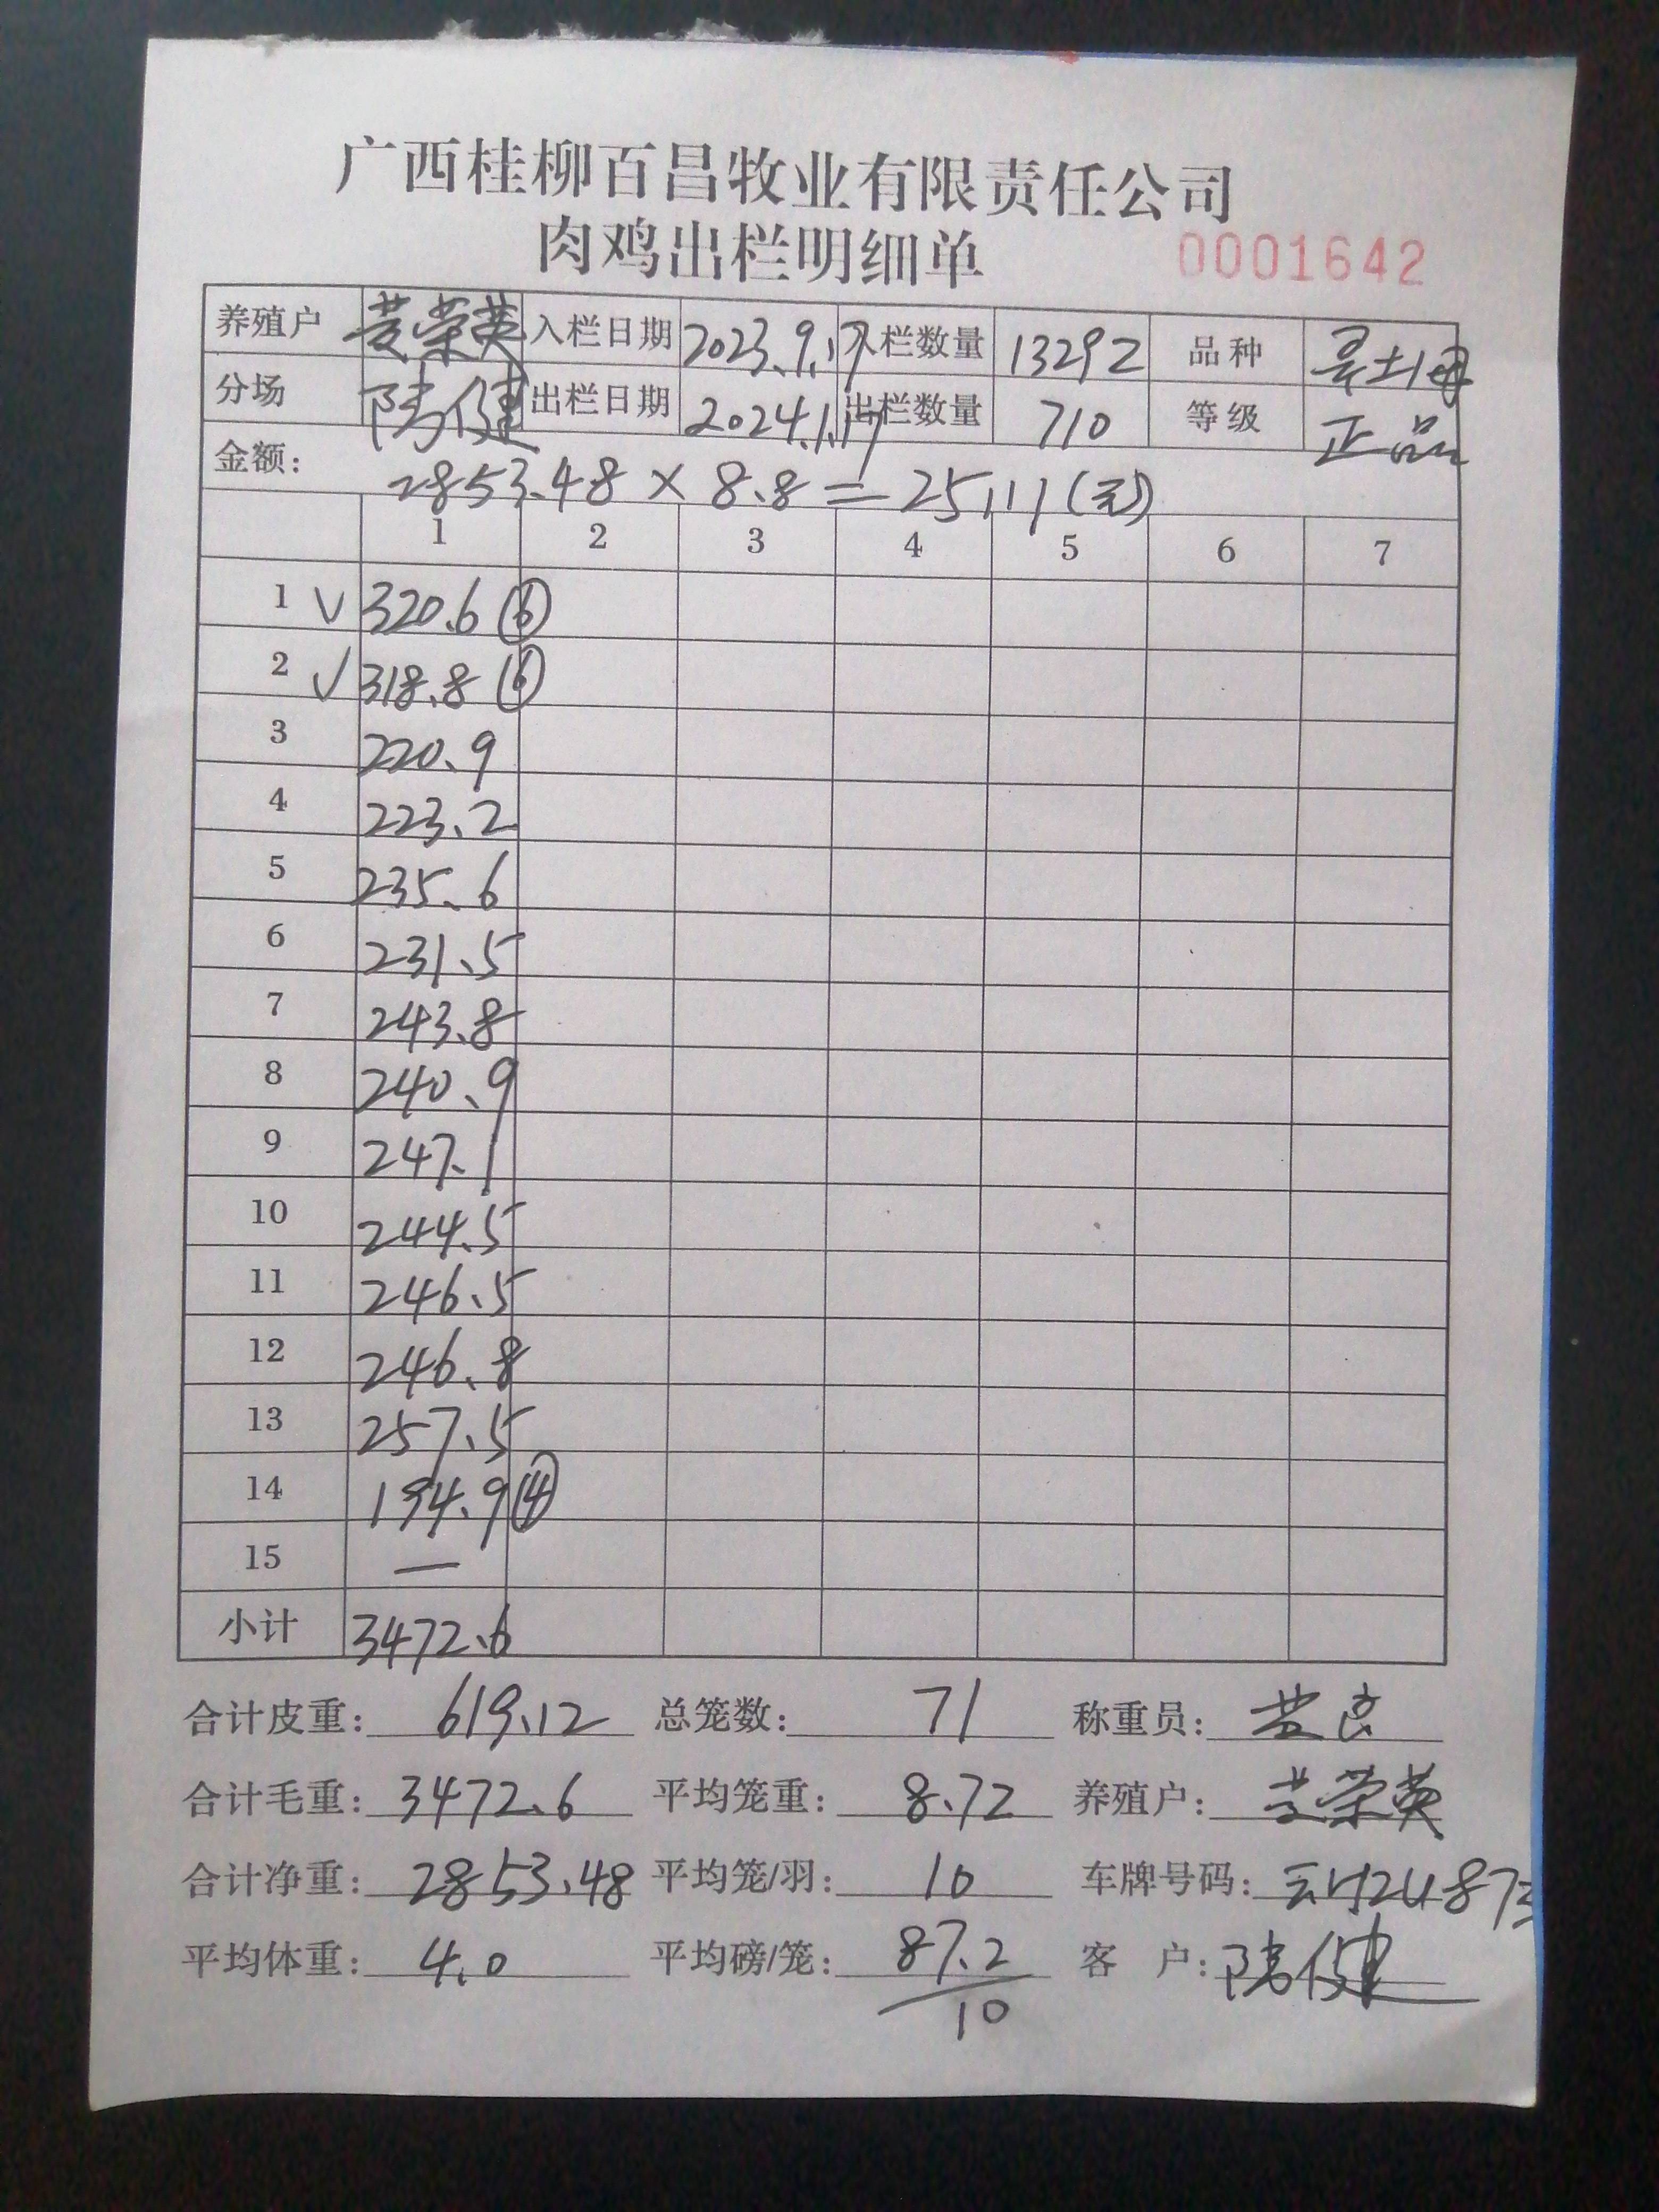 广西桂柳百昌牧业有限责任公司
肉鸡出栏明细单 0001642
养殖户 黄荣英 入栏日期 2023.9.17 入栏数量 13292 品种 土母
分场 陆健 出栏日期 2024.1.17 出栏数量 710 等级 正品
金额: 2853.48 × 8.8 = 25111(元)
1 2 3 4 5 6 7
1 √ 320.6 ⑥
2 √ 318.8 ⑥
3 220.9
4 223.2
5 235.6
6 231.5
7 243.8
8 240.9
9 247.1
10 244.5
11 246.5
12 246.8
13 257.5
14 194.9 ④
15 —
小计 3472.6
合计皮重: 619.12 总笼数: 71 称重员:
合计毛重: 3472.6 平均笼重: 8.72 养殖户: 黄荣英
合计净重: 2853.48 平均笼/羽: 10 车牌号码:
平均体重: 4.0 平均磅/笼: 87.2 客户: 陆健
10